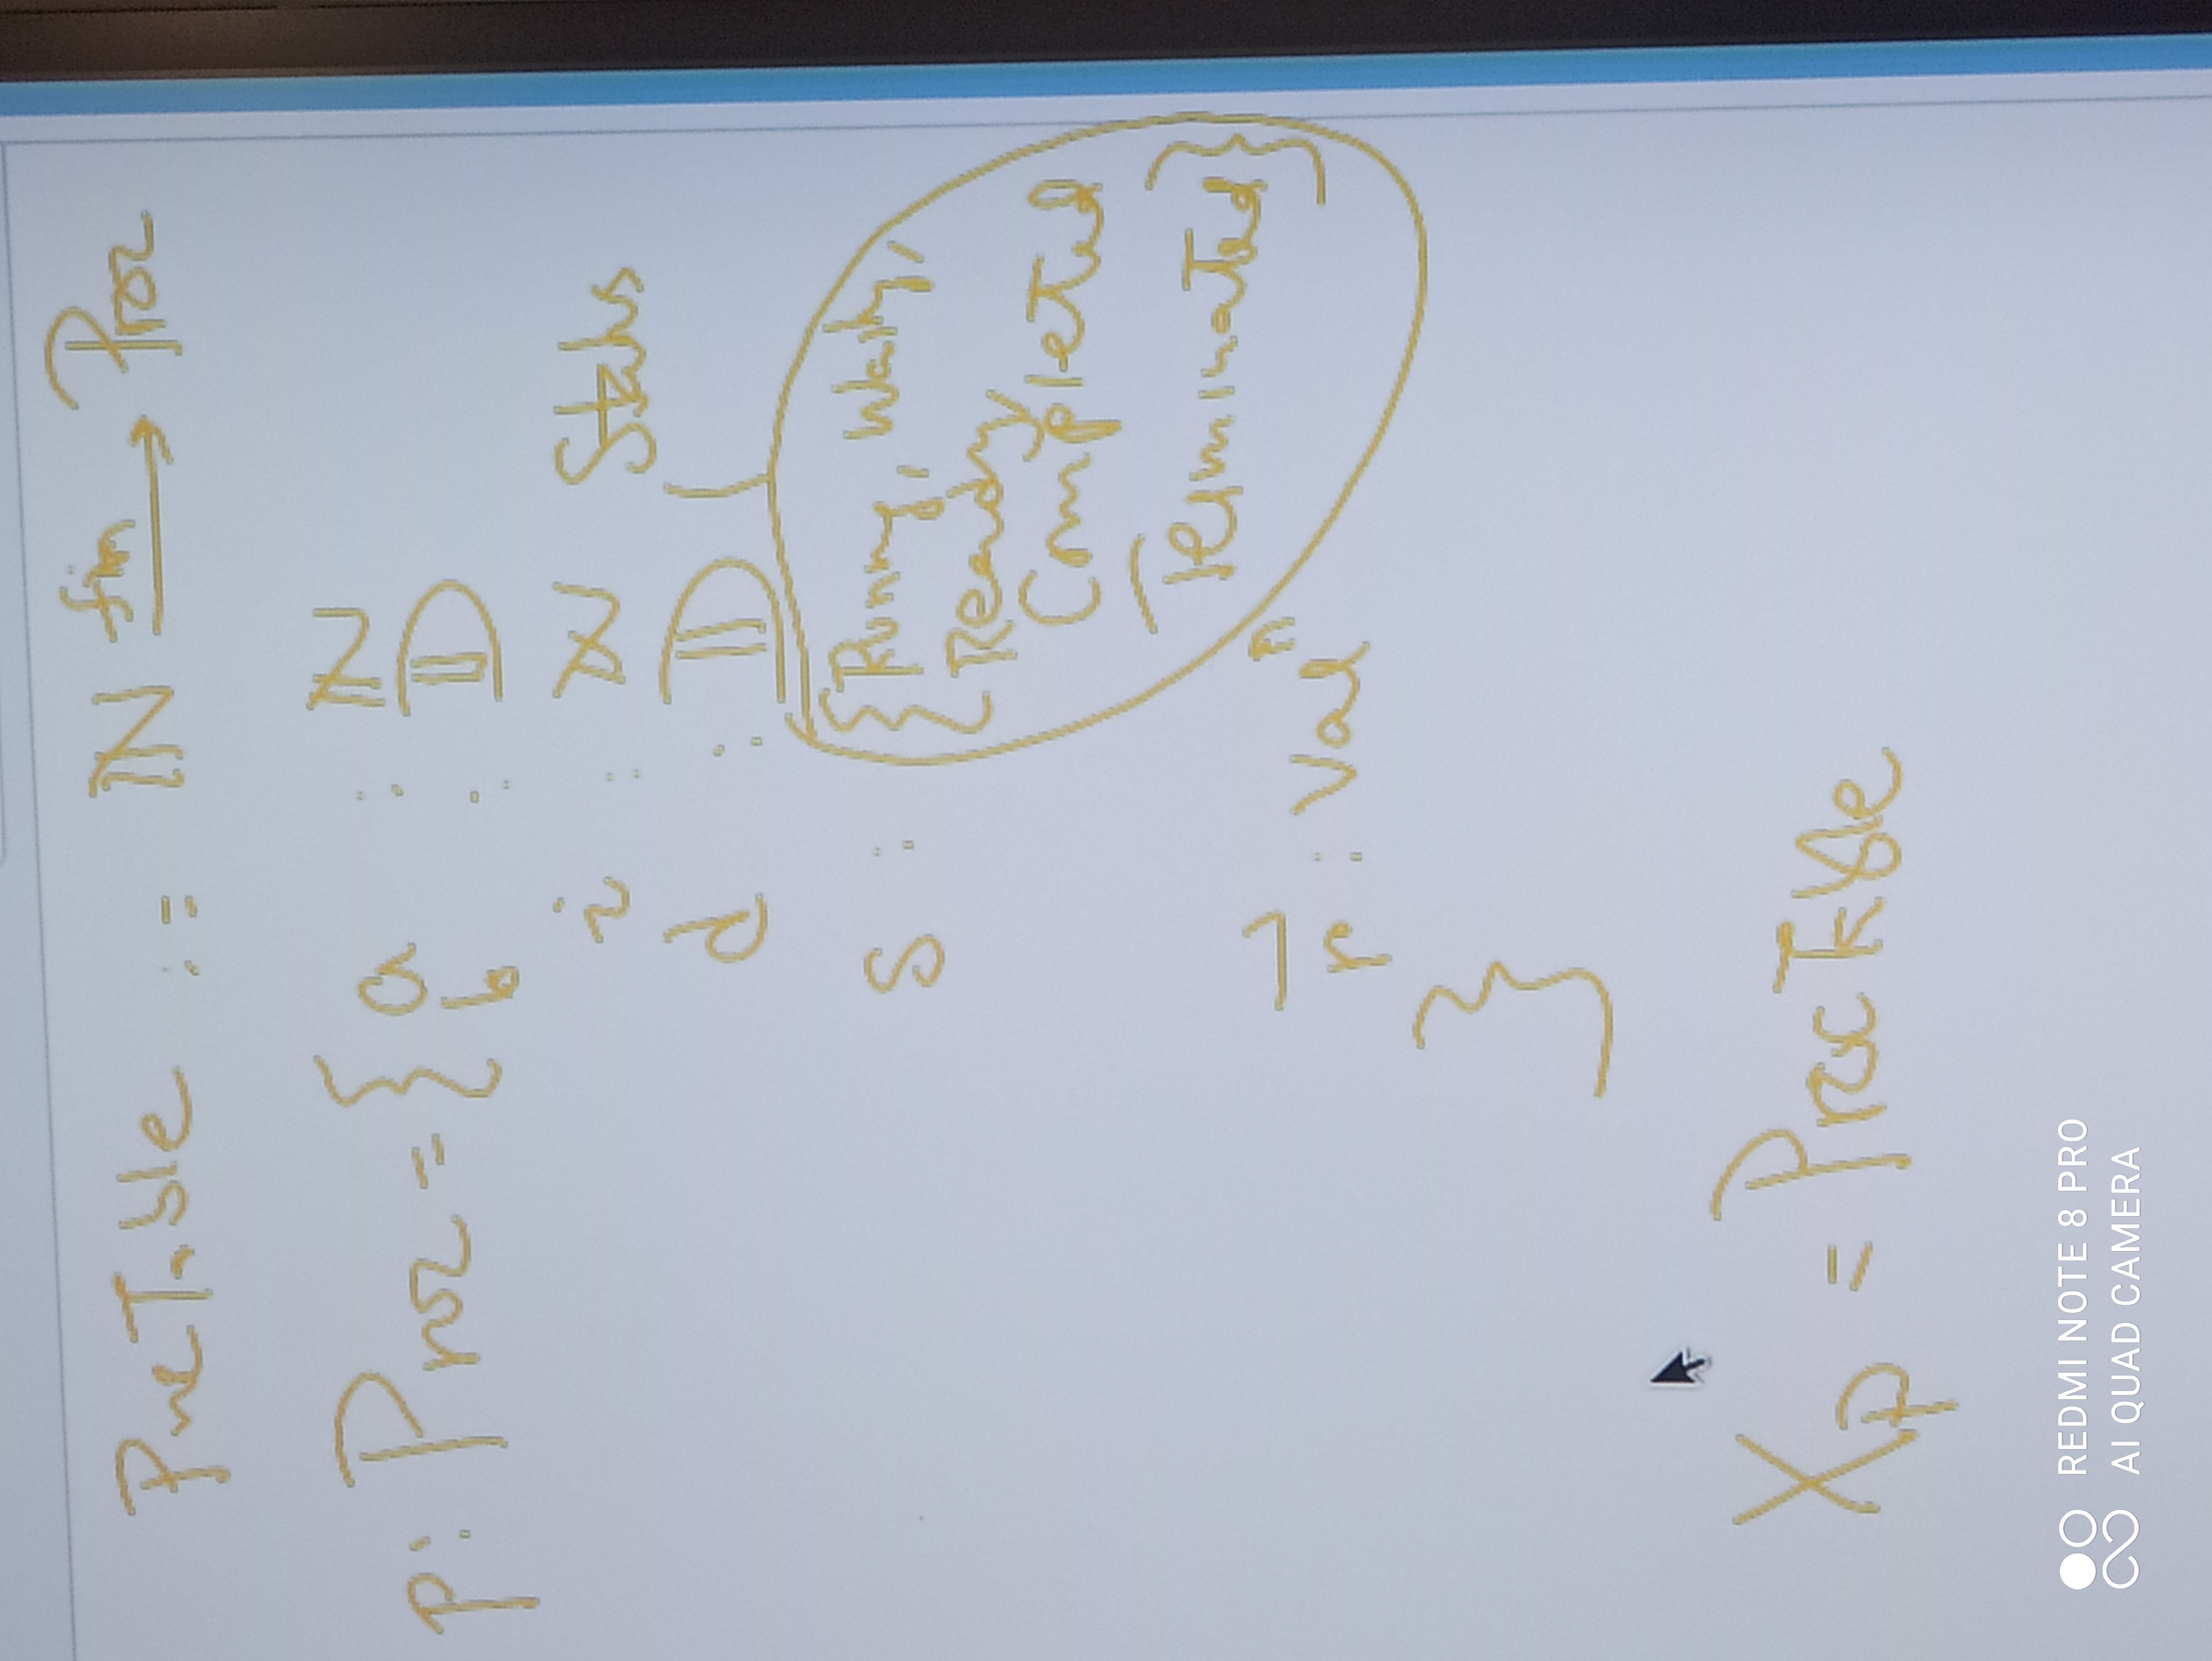 ProcTable := ℕ fin→ Proc
p: Proc = { a : ℕ
b : 𝔻
i : ℕ
Status
d : 𝔻
s : {Running, Waiting,
Ready,
Completed
Terminated}
r⃗ : Valⁿ
}
Xₚ = ProcTable
REDMI NOTE 8 PRO
AI QUAD CAMERA